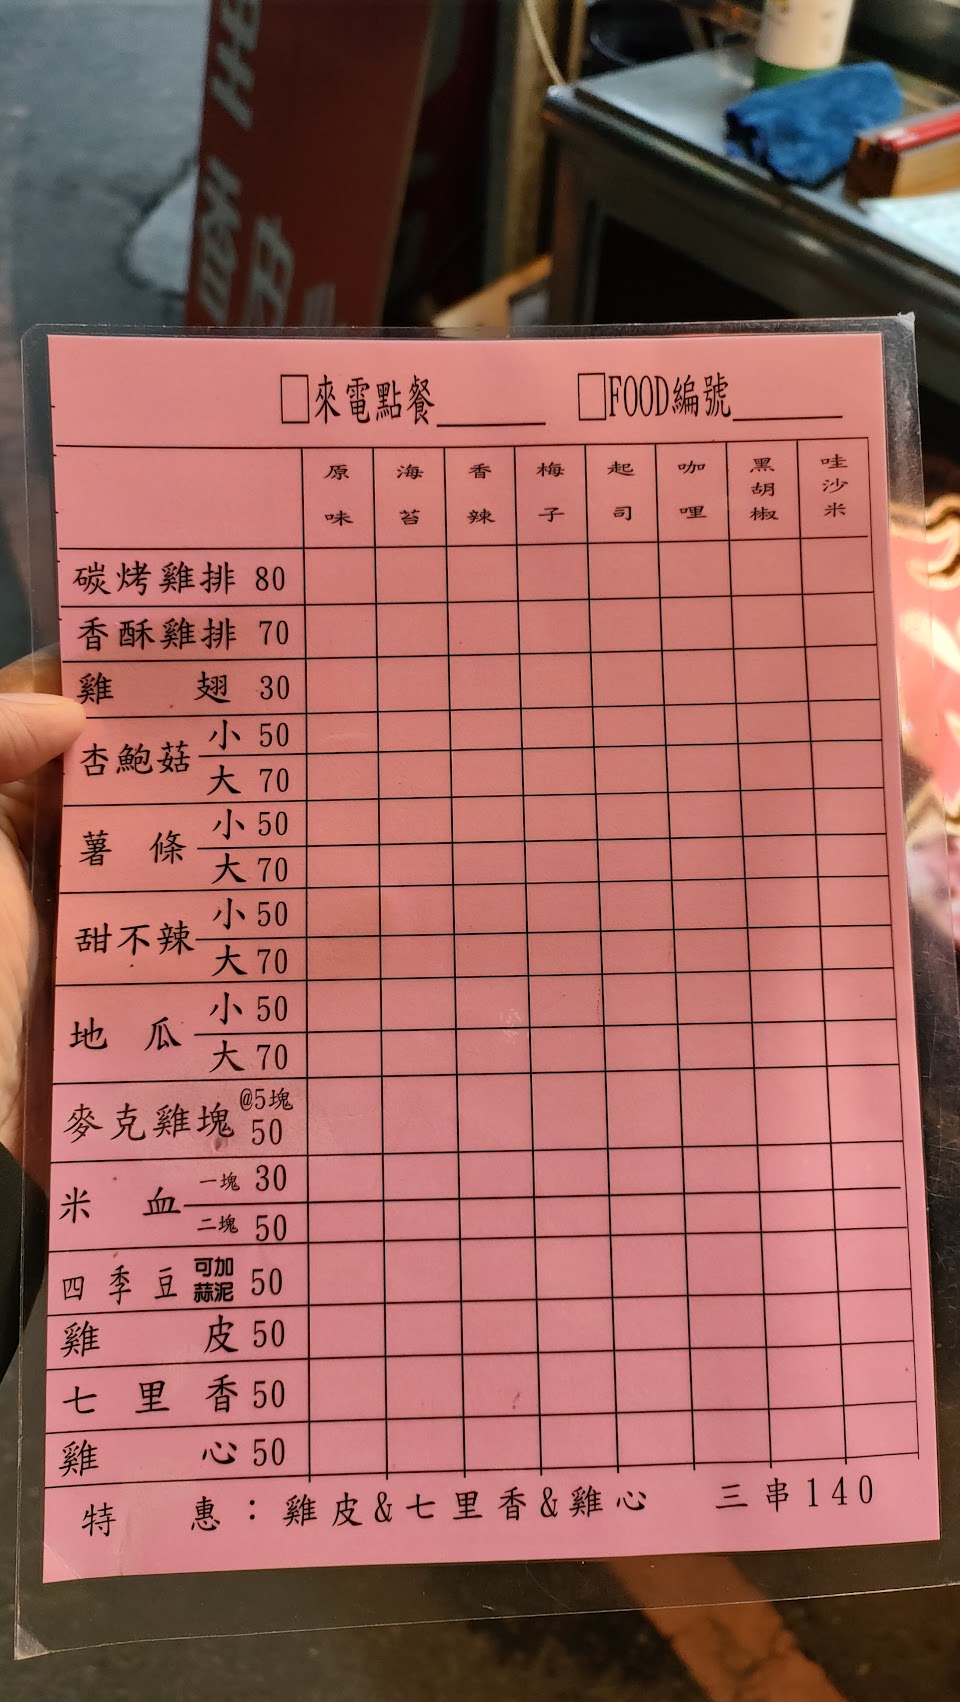 □來電點餐______ □FOOD編號______
原味 海苔 香辣 梅子 起司 咖哩 黑胡椒 哇沙米
碳烤雞排 80
香酥雞排 70
雞翅 30
杏鮑菇 小 50
大 70
薯條 小 50
大 70
甜不辣 小 50
大 70
地瓜 小 50
大 70
麥克雞塊 @5塊 50
米血 一塊 30
二塊 50
四季豆 可加蒜泥 50
雞皮 50
七里香 50
雞心 50
特惠：雞皮&七里香&雞心 三串140